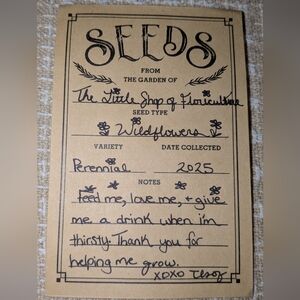 SEEDS
FROM
THE GARDEN OF
The Little Shop of Floriculture
SEED TYPE
Wildflowers
VARIETY DATE COLLECTED
Perennial 2025
NOTES
Feed me, love me, + give
me a drink when i'm
thirsty. Thank you for
helping me grow.
XOXO